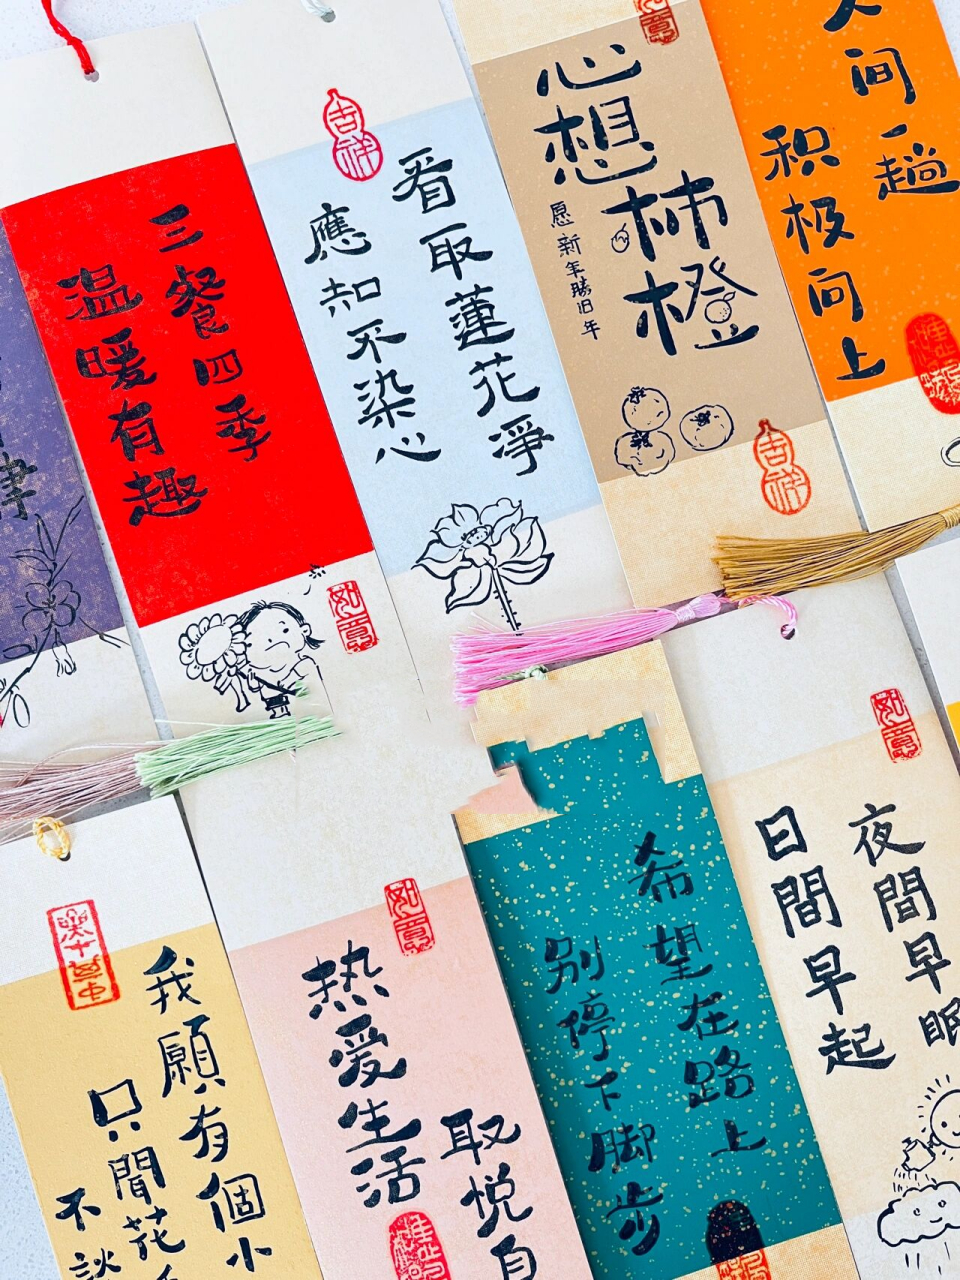 律
三餐四季
温暖有趣
吉祥
看取蓮花淨
應知不染心
如意
如意
心想柿橙
愿新年勝旧年
吉祥
人间一趟
积极向上
我願有個小
只聞花
不談
如意
热爱生活
取悦自
希望在路上
别停下脚步
如意
夜間早眠
日間早起